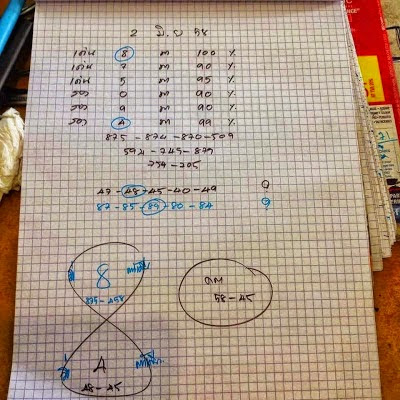 2 มิ.ย 58
เด่น 8 m 100 %
เด่น 7 m 90 %
เด่น 5 m 95 %
รอง 0 m 90 %
รอง 9 m 90 %
รอง 4 m 99 %
875 - 874 - 870 - 509
594 - 749 - 879
759 - 705
47 - 48 - 45 - 40 - 49
87 - 85 - 89 - 80 - 84
8
4
48 - 45
58 - 45